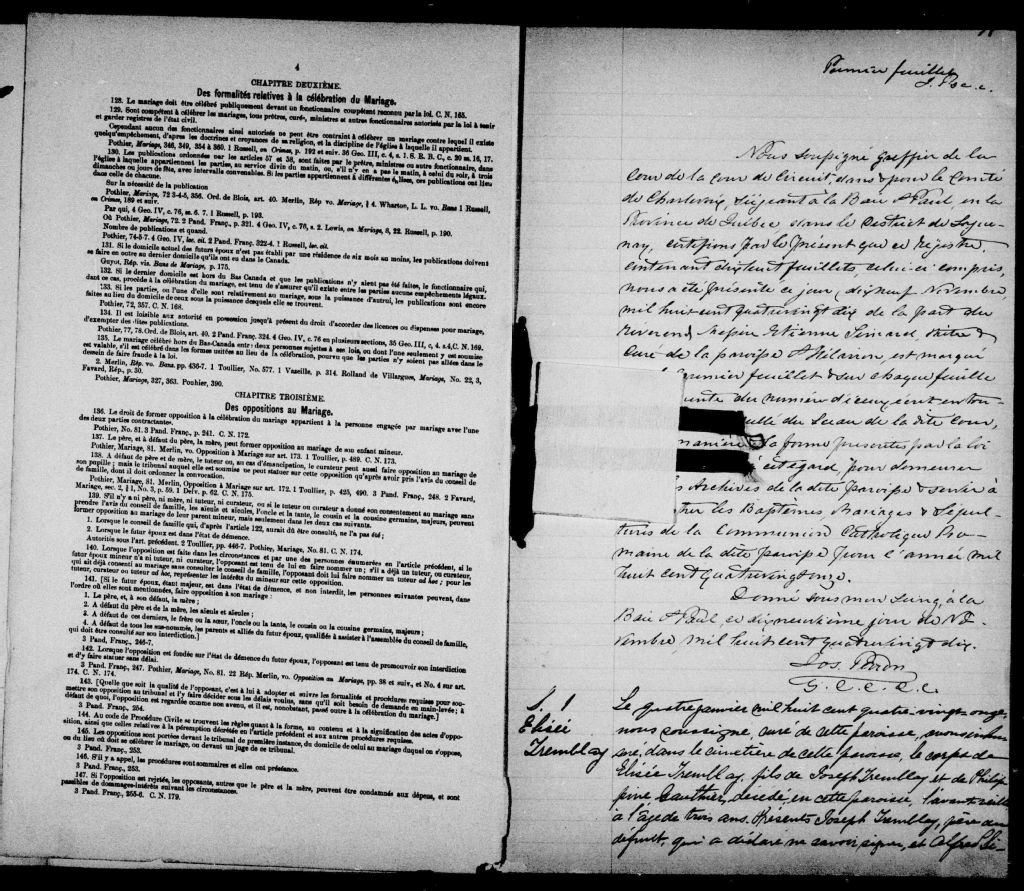 4
CHAPITRE DEUXIÈME.
Des formalités relatives à la célébration du Mariage.
128. Le mariage doit être célébré publiquement devant un fonctionnaire compétent reconnu par la loi. C. N. 165.
129. Sont compétents à célébrer les mariages, tous prêtres, curés, ministres et autres fonctionnaires autorisés par la loi à tenir
et garder registres de l'état civil.
Cependant aucun des fonctionnaires ainsi autorisés ne peut être contraint à célébrer un mariage contre lequel il existe
quelqu'empêchement, d'après les doctrines et croyances de sa religion, et la discipline de l'église à laquelle il appartient.
Pothier, Mariage, 346, 349, 354 à 360. 1 Russell, on Crimes, p. 192 et suiv. 36 Geo. III, c. 4, s. 1. S. R. B. C., c. 20 ss. 16, 17.
130. Les publications ordonnées par les articles 57 et 58, sont faites par le prêtre, ministre ou autre fonctionnaire, dans
l'église à laquelle appartiennent les parties, au service divin du matin, ou, s'il n'y en a pas le matin, à celui du soir, à trois
dimanches ou jours de fête, avec intervalle convenables. Si les parties appartiennent à différentes églises, ces publications ont lieu
dans celle de chacune.
Sur la nécessité de la publication
Pothier, Mariage, 72 3-4-5, 356. Ord. de Blois, art. 40. Merlin, Rép vo. Mariage, § 4. Wharton, L. L. vo. Bans 1 Russell,
on Crimes, 189 et suiv.
Par qui, 4 Geo. IV, c. 76, ss. 6. 7. 1 Russell, p. 193.
Où Pothier, Mariage, 72. 2 Pand. Franç., p. 321. 4 Geo. IV, c. 76, s. 2. Lewis, on Mariage, 8, 22. Russell, p. 190.
Nombre de publications et quand.
Pothier, 74-5-7. 4 Geo. IV, loc. cit. 2 Pand. Franç. 322-4. 1 Russell, loc. cit.
131. Si le domicile actuel des futurs époux n'est pas établi par une résidence de six mois au moins, les publications doivent
se faire en outre au dernier domicile qu'ils ont eu dans le Canada.
Guyot, Rép. vis. Bans de Mariage, p. 175.
132. Si le dernier domicile est hors du Bas Canada et que les publications n'y aient pas été faites, le fonctionnaire qui,
dans ce cas, procède à la célébration du mariage, est tenu de s'assurer qu'il existe entre les parties aucuns empêchements légaux.
133. Si les parties, ou l'une d'elle sont relativement au mariage, sous la puissance d'autrui, les publications sont encore
faites au lieu du domicile de ceux sous la puissance desquels elle se trouvent.
Pothier, 72, 357. C. N. 168.
134. Il est loisible aux autorité en possession jusqu'à présent du droit d'accorder des licences ou dispenses pour mariage,
d'exempter des dites publications.
Pothier, 77, 78. Ord. de Blois, art. 40. 2 Pand. Franç. 324. 4 Geo. IV, c. 76 en plusieurs sections, 35 Geo. III, c, 4, s.4, C. N. 169.
135. Le mariage célébré hors du Bas-Canada entre deux personnes sujettes à ses lois, ou dont l'une seulement y est soumise
est valable, s'il est célébré dans les formes usitées au lieu de la célébration, pourvu que les parties n'y soient pas allées dans le
dessein de faire fraude à la loi.
2. Merlin, Rép. vo. Bans. pp. 436-7. 1 Toullier, No. 577. 1 Vazeille, p. 314. Rolland de Villargues, Mariage, No. 22, 3,
Favard, Rép., p. 30.
Pothier, Mariage, 327, 363. Pouhier, 390.
CHAPITRE TROISIÈME.
Des oppositions au Mariage.
136. Le droit de former opposition à la célébration du mariage appartient à la personne engagée par mariage avec l'une
des deux parties contractantes.
Pothier, No. 81. 3 Pand. Franç., p. 241. C. N. 172.
137. Le père, et à défaut du père, la mère, peut former opposition au mariage de son enfant mineur.
Pothier, Mariage, 81. Merlin, vo. Opposition à Mariage sur art. 173. 1 Toullier, p. 489. C. N. 173.
138. A défaut de père et de mère, le tuteur ou, au cas d'émancipation, le curateur peut aussi faire opposition au mariage de
son pupille; mais le tribunal auquel elle est soumise ne peut statuer sur cette opposition qu'après avoir pris l'avis du conseil de
famille, dont il doit ordonner la convocation.
Pothier, Mariage, 81. Merlin, Opposition au Mariage sur art. 172. 1 Toullier, p. 425, 490. 3 Pand. Franç., 248. 2 Favard,
Mariage, sec. 2, § 1, No. 3, p. 59. 1 Delv. p. 62. C. N. 175.
139. S'il n'y a ni père, ni mère, ni tuteur, ni curateur, ou si le tuteur ou curateur a donné son consentement au mariage sans
prendre l'avis du conseil de famille, les aïeuls et aïeules, l'oncle et la tante, le cousin et la cousine germains, majeurs, peuvent
former opposition au mariage de leur parent mineur, mais seulement dans les deux cas suivants.
1. Lorsque le conseil de famille qui, d'après l'article 122, aurait dû être consulté, ne l'a pas été;
2. Lorsque le futur époux est dans l'état de démence.
Autorités sous l'art. précédent. 2 Toullier, pp. 446-7. Pothier, Mariage, No. 81. C. N. 174.
140. Lorsque l'opposition est faite dans les circonstances et par une des personnes énumérées en l'article précédent, si le
futur époux mineur n'a ni tuteur, ni curateur, l'opposant est tenu de lui en faire nommer un; s'il a déjà un tuteur, ou curateur,
qui ait déjà consenti au mariage sans consulter le conseil de famille, l'opposant doit lui faire nommer un tuteur ad hoc; pour les
tuteur, curateur ou tuteur ad hoc, représenter les intérêts du mineur sur cette opposition.
141. [Si le futur époux, étant majeur, est dans l'état de démence, et non interdit, les personnes suivantes peuvent, dans
l'ordre où elles sont mentionnées, faire opposition à son mariage:
1. Le père, et, à son défaut, la mère;
2. A défaut du père et de la mère, les aïeuls et aïeules;
3. A défaut de ces derniers, le frère ou la sœur, l'oncle ou la tante, le cousin ou la cousine germains, majeurs;
4. A défaut de tous les sus-nommés, les parents et alliés du futur époux, qualifiés à assister à l'assemblée du conseil de famille,
qui doit être consulté sur son interdiction.]
3 Pand. Franç., 246-7.
142. Lorsque l'opposition est fondée sur l'état de démence du futur époux, l'opposant est tenu de promouvoir son interdiction
et d'y faire statuer sans délai.
3 Pand. Franç., 247. Pothier, Mariage, No. 81. 22 Rép. Merlin, vo. Opposition au Mariage, pp. 38 et suiv., et No. 4 sur art.
174. C. N. 174.
143. [Quelle que soit la qualité de l'opposant, c'est à lui à adopter et suivre les formalités et procédures requises pour sou-
mettre son opposition au tribunal et l'y faire décider sous les délais voulus, sans qu'il soit besoin de demande en main-levée; à
défaut de quoi, l'opposition est regardée comme non avenu, et il est, nonobstant, passé outre à la célébration du mariage.]
3 Pand. Franç., 254.
144. Au code de Procédure Civile se trouvent les règles quant à la forme, au contenu et à la signification des actes d'oppo-
sition, ainsi que celles relatives à la péremption décrétée en l'article précédent et aux autres procédures requises.
145. Les oppositions sont portées devant le tribunal de première instance, du domicile de celui au mariage duquel on s'oppose,
ou du lieu où doit se célébrer le mariage, ou devant un juge de ce tribunal.
3 Pand. Franç., 253.
146. S'il y a appel, les procédures sont sommaires et elles ont préséance.
3 Pand. Franç., 253.
147. Si l'opposition est rejetée, les opposants, autres que le père et la mère, peuvent être condamnés aux dépens, et sont
passibles de dommages-intérêts suivant les circonstances.
3 Pand. Franç., 255-6. C. N. 179.
Premier feuillet
Nous soussigné Greffier de la
Cour de la Cour de Circuit dans & pour le Comté
de Charlevoix, siégeant à la Baie St Paul, en la
Province de Québec dans le District de Sague-
nay, certifions par le présent que ce Registre
contenant dixhuit feuillets, celui-ci compris,
nous a été présenté ce jour, dixneuf Novembre
mil huit cent quatrevingt dix de la part du
Révérend Messire Etienne Simard, Prêtre &
Curé de la paroisse St Hilarion, est marqué
premier feuillet & sur chaque feuille
du numéro d'iceux, écrit en tou-
du Sceau de la dite Cour,
la forme prescrites par la loi
égard, pour demeurer
Archives de la dite paroisse & servir à
les Baptêmes Mariages & Sépul-
tures de la Communion Catholique Ro-
maine de la dite paroisse pour l'année mil
huit cent quatrevingt onze.
Donné sous mon seing, à la
Baie St Paul, ce dixneuvième jour de No-
vembre mil huit cent quatrevingt dix.
Jos. Perron
G. C. C. C. C.
S. 1
Elisée
Tremblay
Le quatre janvier mil huit cent quatre-vingt-onze
nous soussigné, curé de cette paroisse, avons inhu-
mé, dans le cimetière de cette paroisse, le corps de
Elisée Tremblay, fils de Joseph Tremblay et de Philip-
pine Gauthier, décédé, en cette paroisse, l'avant veille
à l'âge de trois ans. Présents Joseph Tremblay, père du
défunt, qui a déclaré ne savoir signer, et Alfred Si-